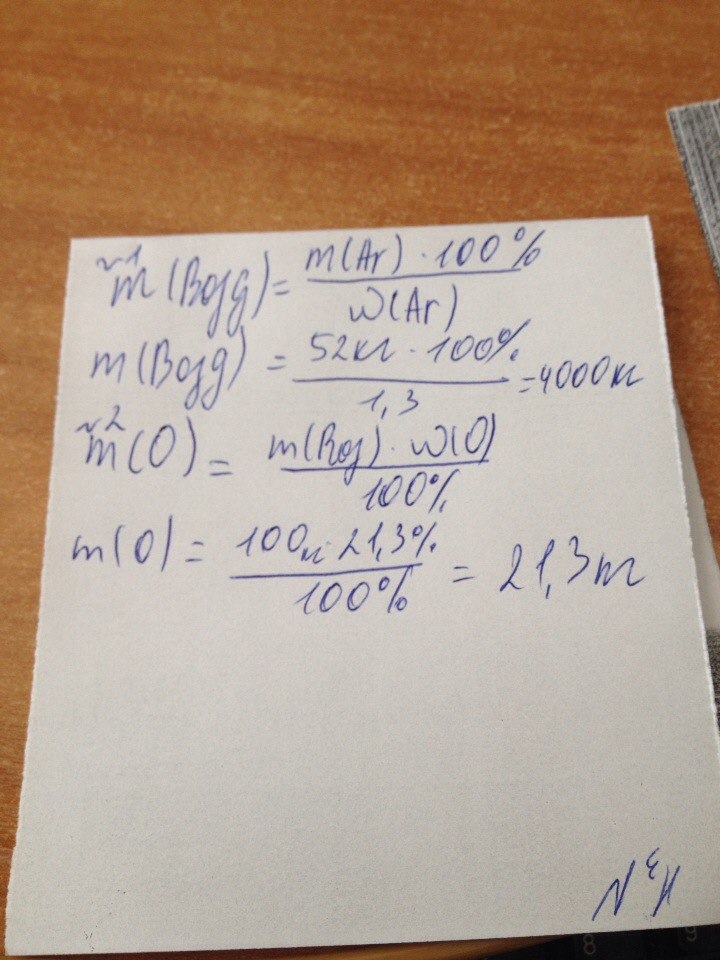 ~1
m(Возд) = m(Ar) · 100% / w(Ar)
m(Возд) = 52кг · 100% / 1,3 = 4000кг
~2
m(O) = m(Воз) · w(O) / 100%
m(O) = 100кг · 21,3% / 100% = 21,3кг
8
9